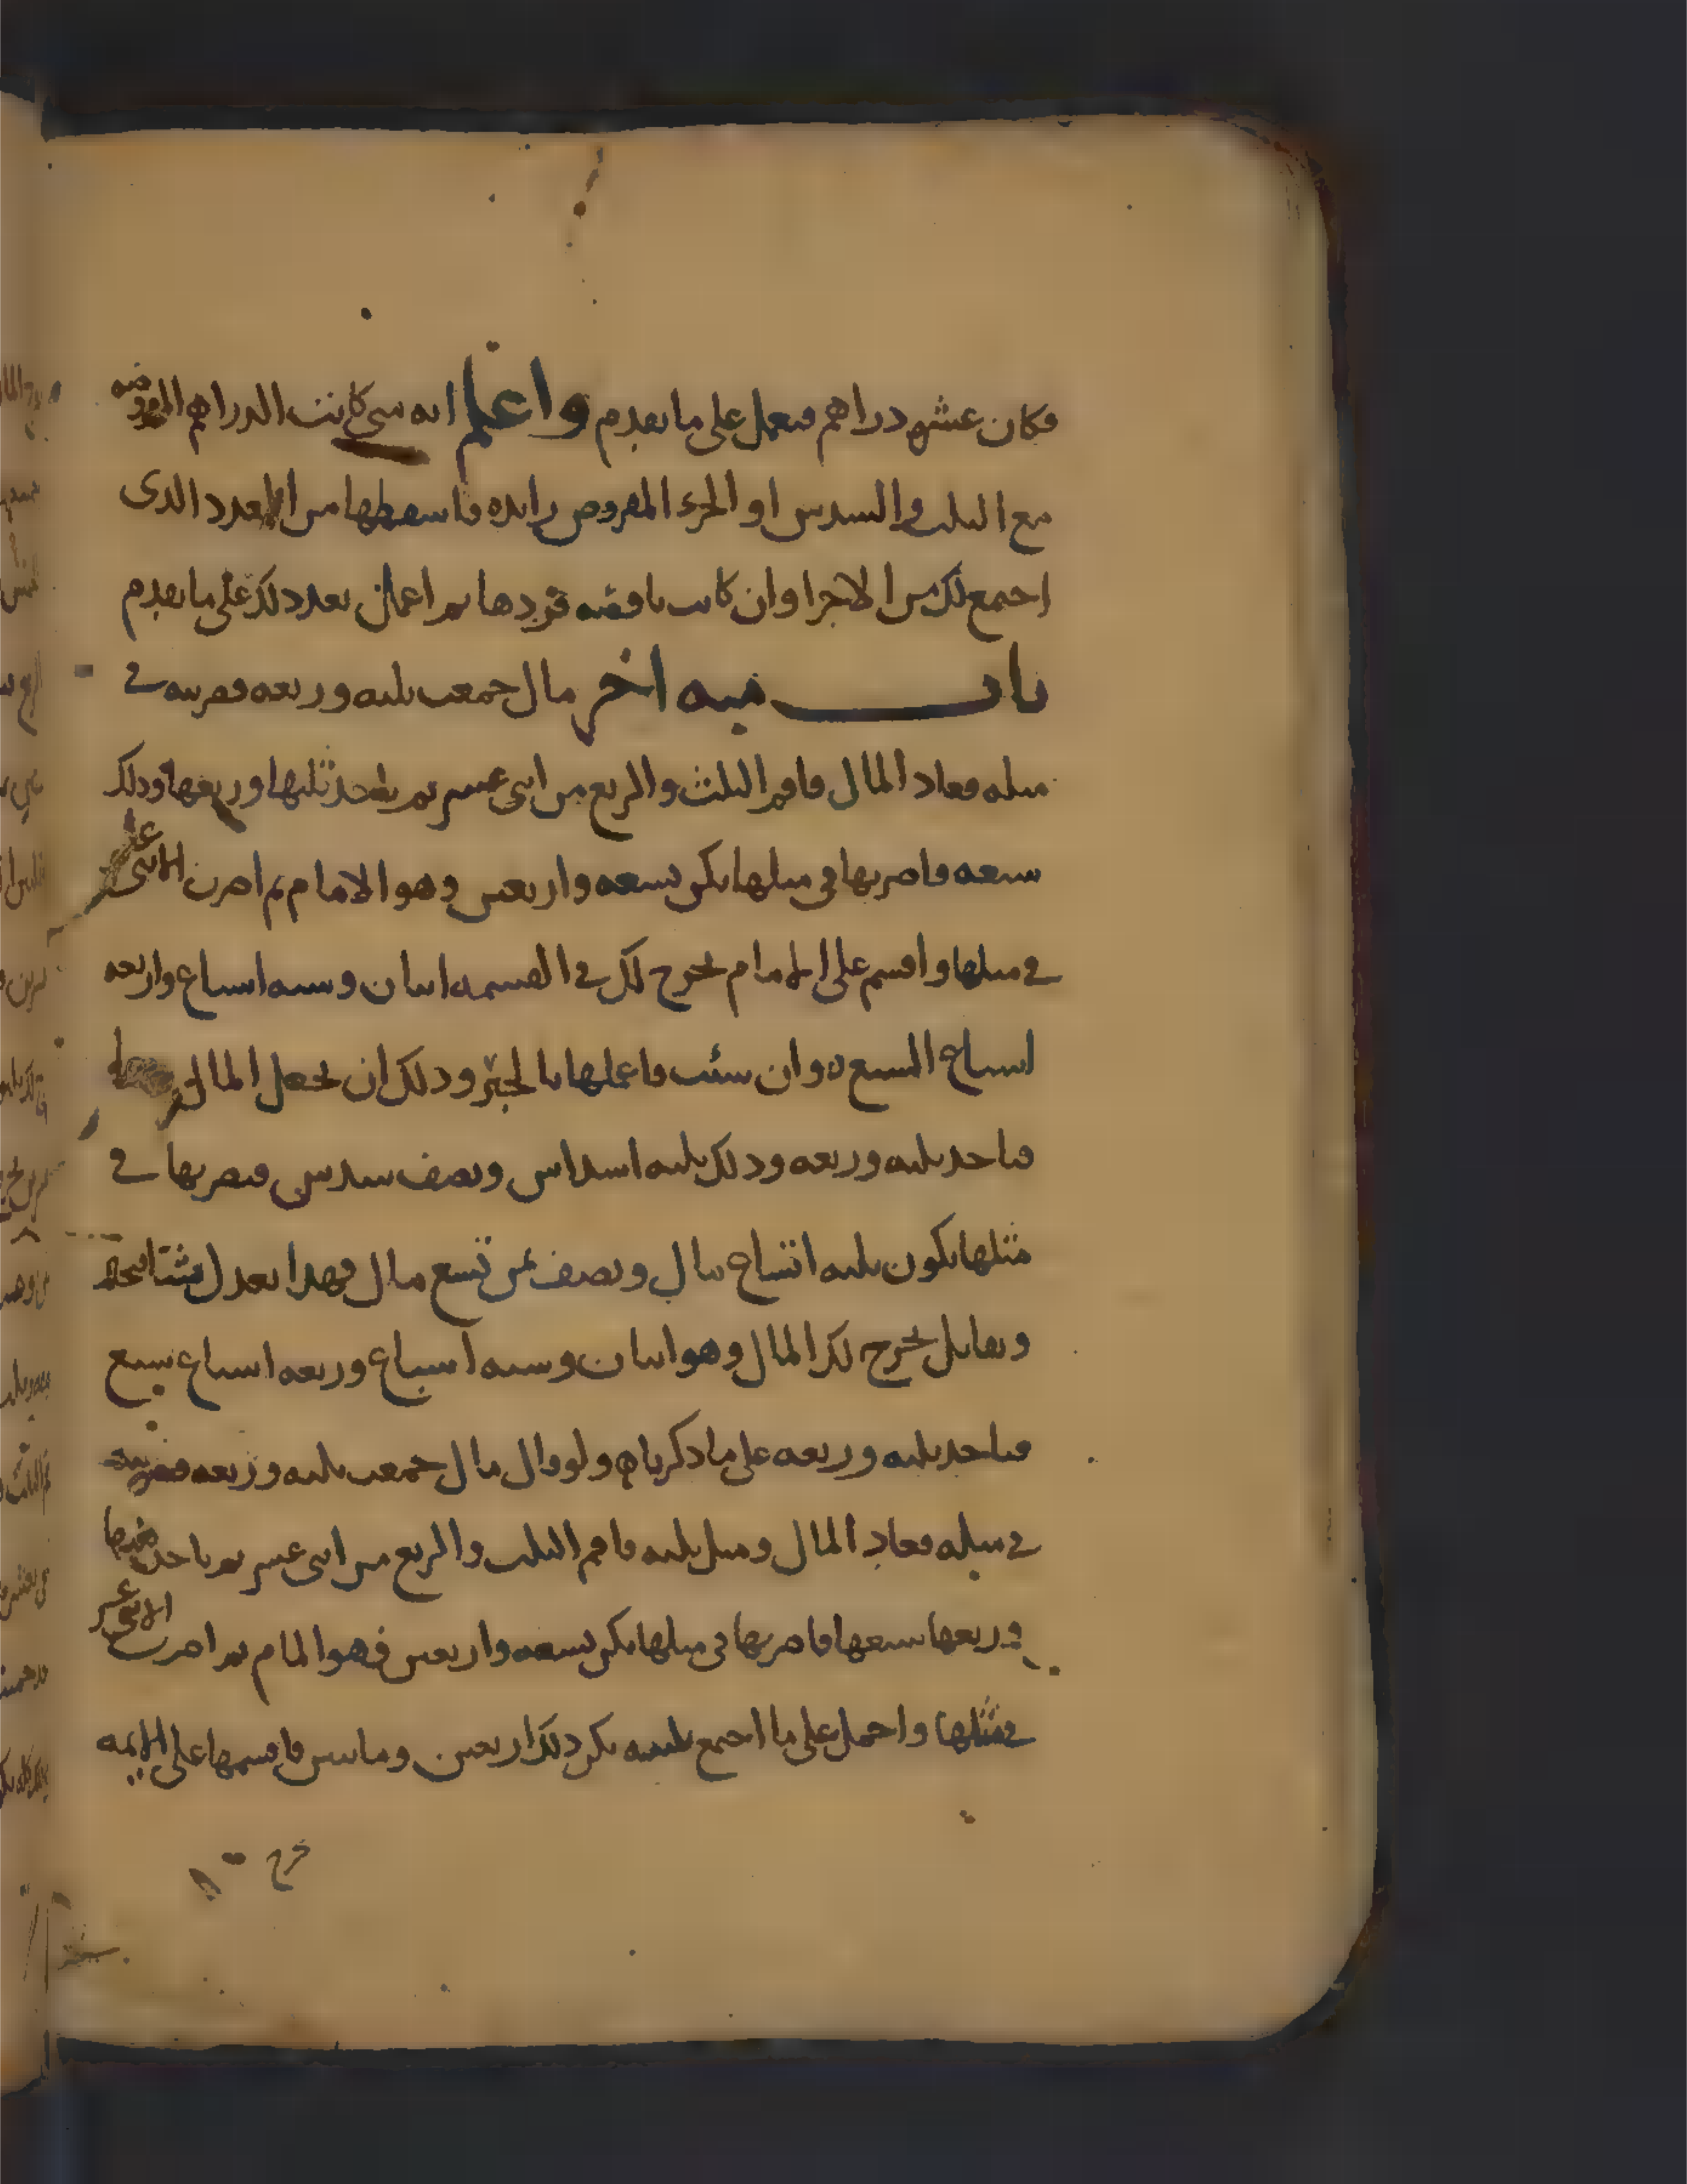 فكان عشره دراهم فيعمل على ما تقدم واعلم انه متى كانت الدراهم المفروضه
مع الثلث والسدس او الجزء المفروض زايده فاسقطها من العدد الذى
اجتمع لك من الاجزا وان كانت ناقصه فزدها ثم اعمل بعد ذلك على ما تقدم
باب منه اخر مال جمعت ثلثه وربعه فضربته فى
مثله فعاد المال فاقم الثلث والربع من اثنى عشر ثم تاخذ ثلثها وربعها وذلك
سبعه فاضربها فى مثلها يكن تسعه واربعين وهو الامام ثم اضرب الاثنى عشر
فى مثلها واقسم على الامام يخرج لك فى القسمه اثنان وسته اسباع واربعه
اسباع السبع وان شئت فاعملها بالجبر وذلك ان تجعل المال
فتاخذ ثلثه وربعه وذلك ثلثه اسداس ونصف سدس فتضربها فى
مثلها يكون ثلثه اتساع مال ونصف ثمن تسع مال فهذا يعدل شيئا
وتقابل يخرج لك المال وهو اثنان وسته اسباع وربعه اسباع سبع
فتاخذ ثلثه وربعه على ما ذكرناه ولو قال مال جمعت ثلثه وربعه فضربته
فى مثله فعاد المال ومثل ثلثه فاقم الثلث والربع من اثنى عشر ثم تاخذ
وربعها سبعها فاضربها فى مثلها يكن تسعه واربعين فهو الامام ثم اضرب الاثنى عشر
فى مثلها واحمل على ما اجتمع ثلثه يكن ذلك اربعين ومايتين فاقسمها على الايمه